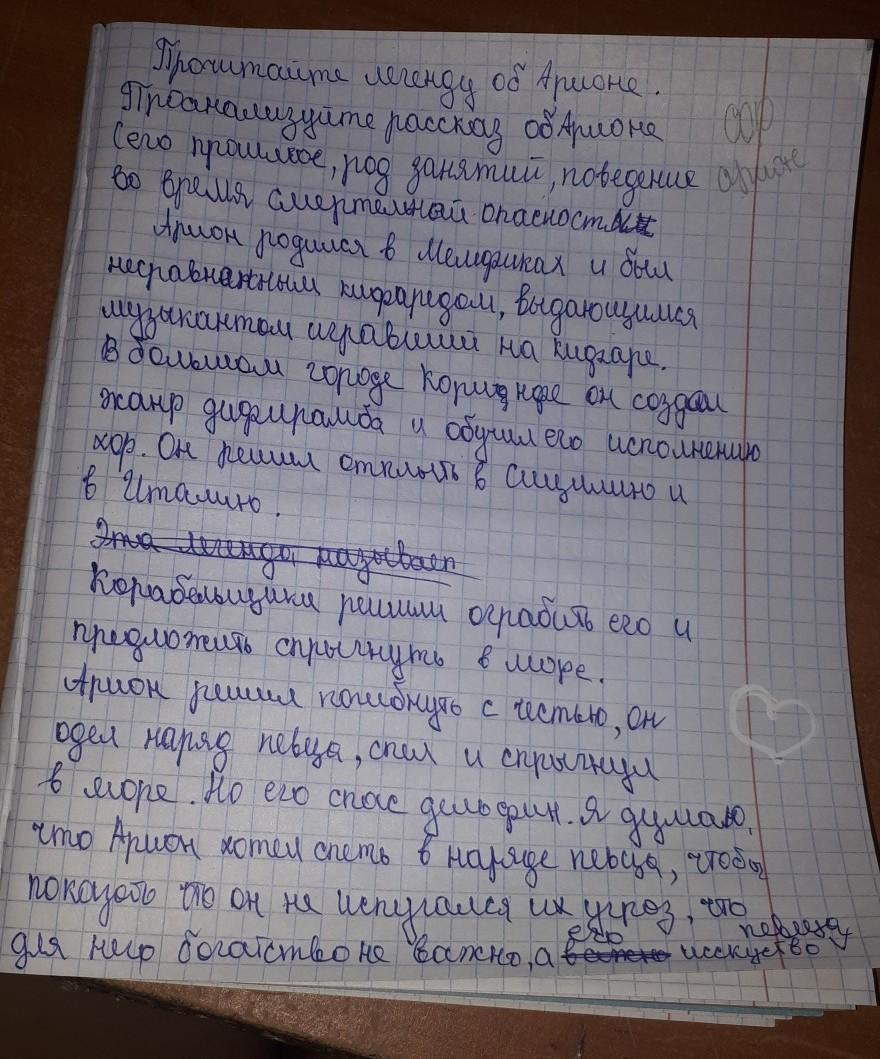 Прочитайте легенду об Арионе.
Проанализуйте рассказ об Арионе
(его прошлое, род занятий, поведение
во время смертельный опасности
Арион родился в Мемфиках и был
несравнанным кифаредом, выдающимся
музыкантом игравший на кифаре.
В большом городе Коринфе он создал
жанр дифирамба и обучил его исполнению
хор. Он решил отплыть в Сицилию и
в Италию.
Эта легенда называет
Корабельщики решили ограбить его и
предложить спрыгнуть в море.
Арион решил погибнуть с честью, он
одел наряд певца, спел и спрыгнул
в море. Но его спас дельфин. Я думаю,
что Арион хотел спеть в наряде певца, чтобы
показать что он не испугался их угроз, что
для него богатство не важно, а его исскуство певица
арионе